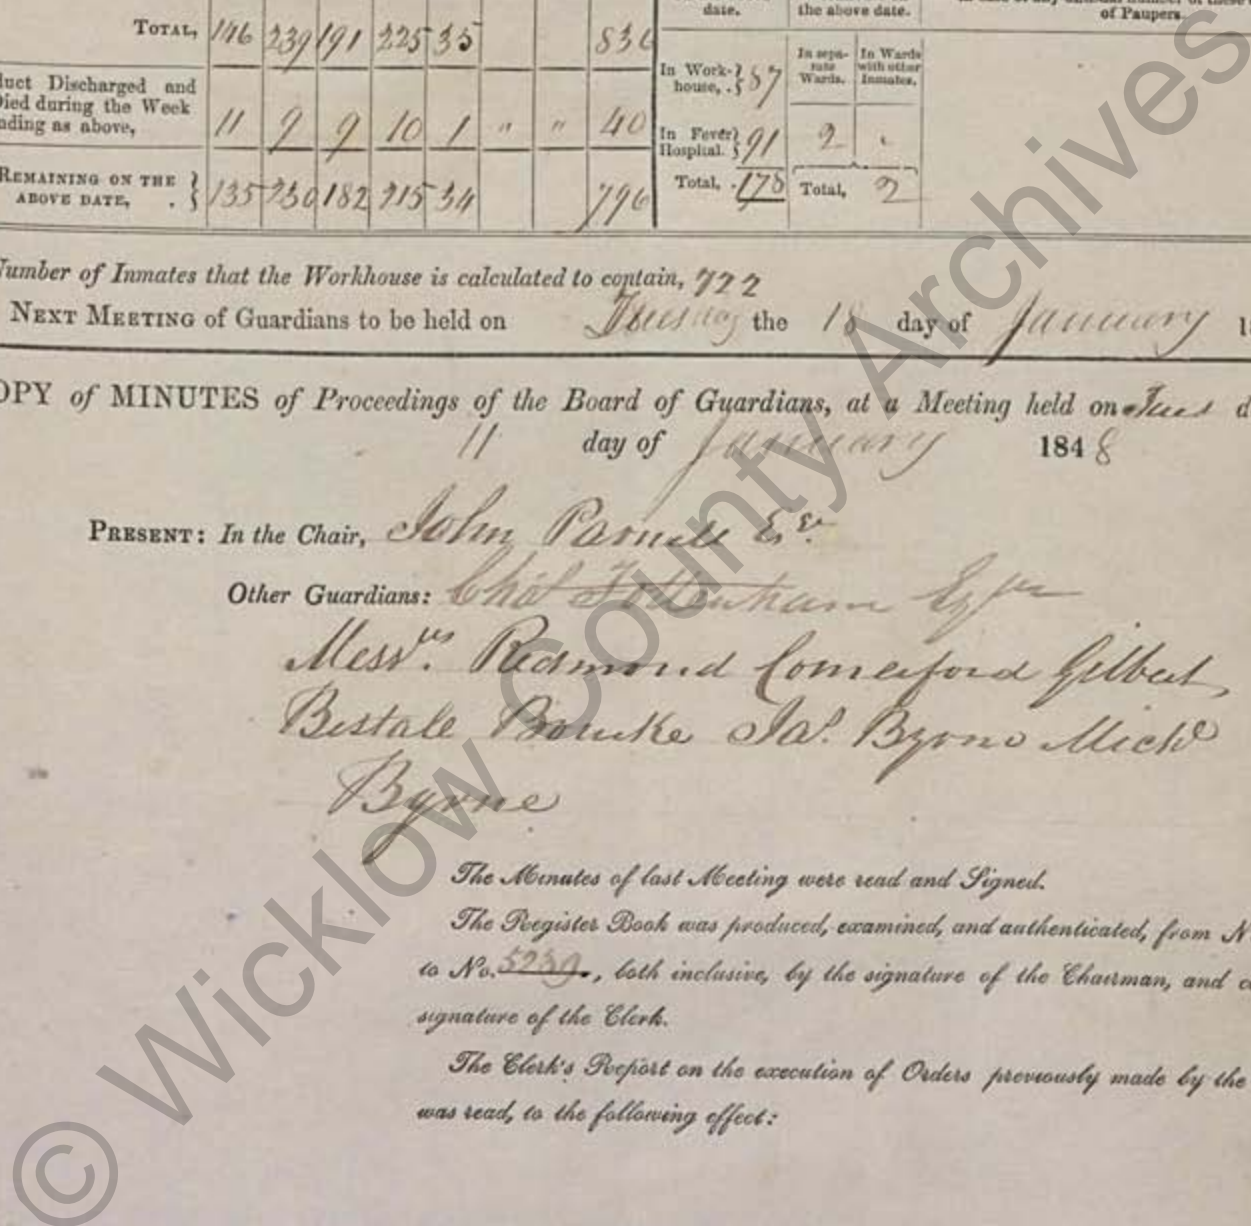 date.
the above date.
of Paupers.
TOTAL, 146 239 191 225 35 836
duct Discharged and
Died during the Week
nding as above, 11 9 9 10 1 " " 40
REMAINING ON THE
ABOVE DATE, . 135 230 182 215 34 796
In Work-
house, . 87
In Fever
Hospital. 91
Total, . 178
In sepa-
rate
Wards.
In Wards
with other
Inmates.
2 .
Total, 2
Number of Inmates that the Workhouse is calculated to contain, 722
NEXT MEETING of Guardians to be held on Tuesday the 18 day of January 1
OPY of MINUTES of Proceedings of the Board of Guardians, at a Meeting held on Tues d
11 day of January 1848
PRESENT: In the Chair, John Parnell Esr.
Other Guardians: Chas Tottenham Esqre
Messrs. Redmond Comerford Gilbert,
Bestale Bourke Jas. Byrne Michl
Byrne
The Minutes of last Meeting were read and Signed.
The Register Book was produced, examined, and authenticated, from N
to No. 5239., both inclusive, by the signature of the Chairman, and c
signature of the Clerk.
The Clerk's Report on the execution of Orders previously made by the
was read, to the following effect:
© Wicklow County Archives